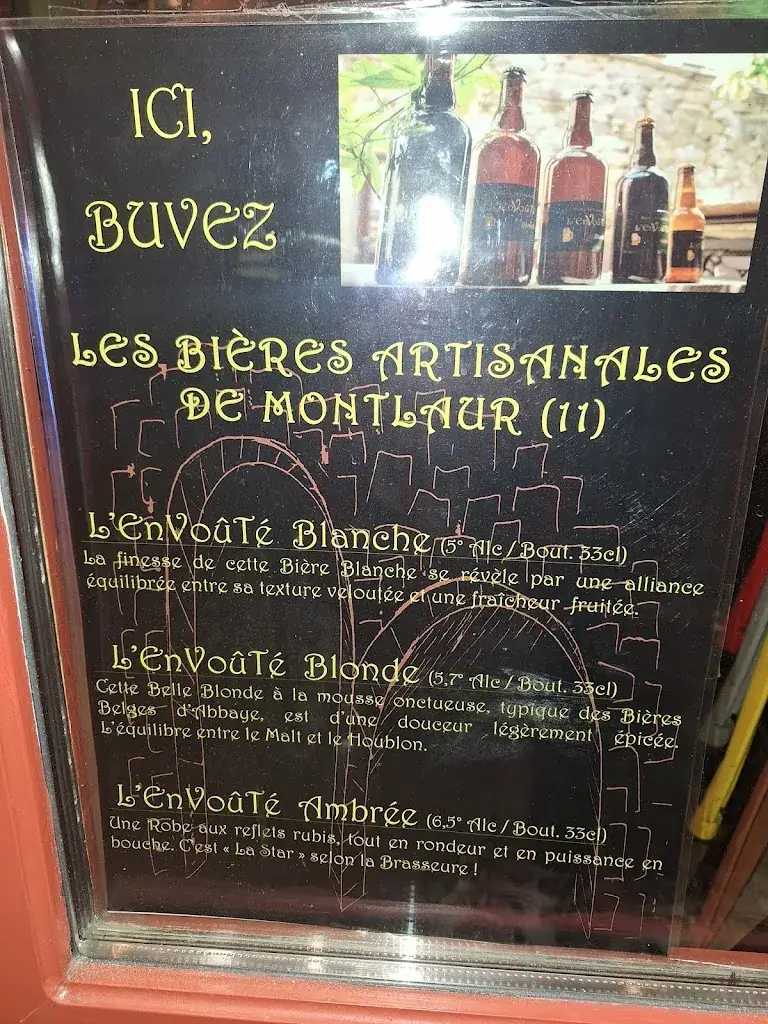 ICI,
BUVEZ
L'EnVoût
L'EnVoût
LES BIÈRES ARTISANALES
DE MONTLAUR (11)
L'EnVoûTé Blanche (5° Alc / Bout. 33cl)
La finesse de cette Bière Blanche se révèle par une alliance
équilibrée entre sa texture veloutée et une fraîcheur fruitée.
L'EnVoûTé Blonde (5,7° Alc / Bout. 33cl)
Cette Belle Blonde à la mousse onctueuse, typique des Bières
Belges d'Abbaye, est d'une douceur légèrement épicée.
L'équilibre entre le Malt et le Houblon.
L'EnVoûTé Ambrée (6,5° Alc / Bout. 33cl)
Une Robe aux reflets rubis, tout en rondeur et en puissance en
bouche. C'est « La Star » selon la Brasseure !